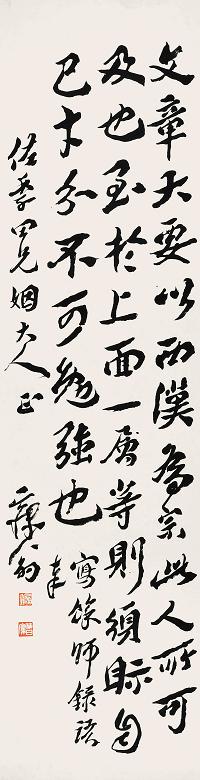 文章大要以西漢為宗此人所可
及也至於上面一層等則須眎自
己才分不可勉強也
寫餘師錄語
佐季四兄姻大人正
翁